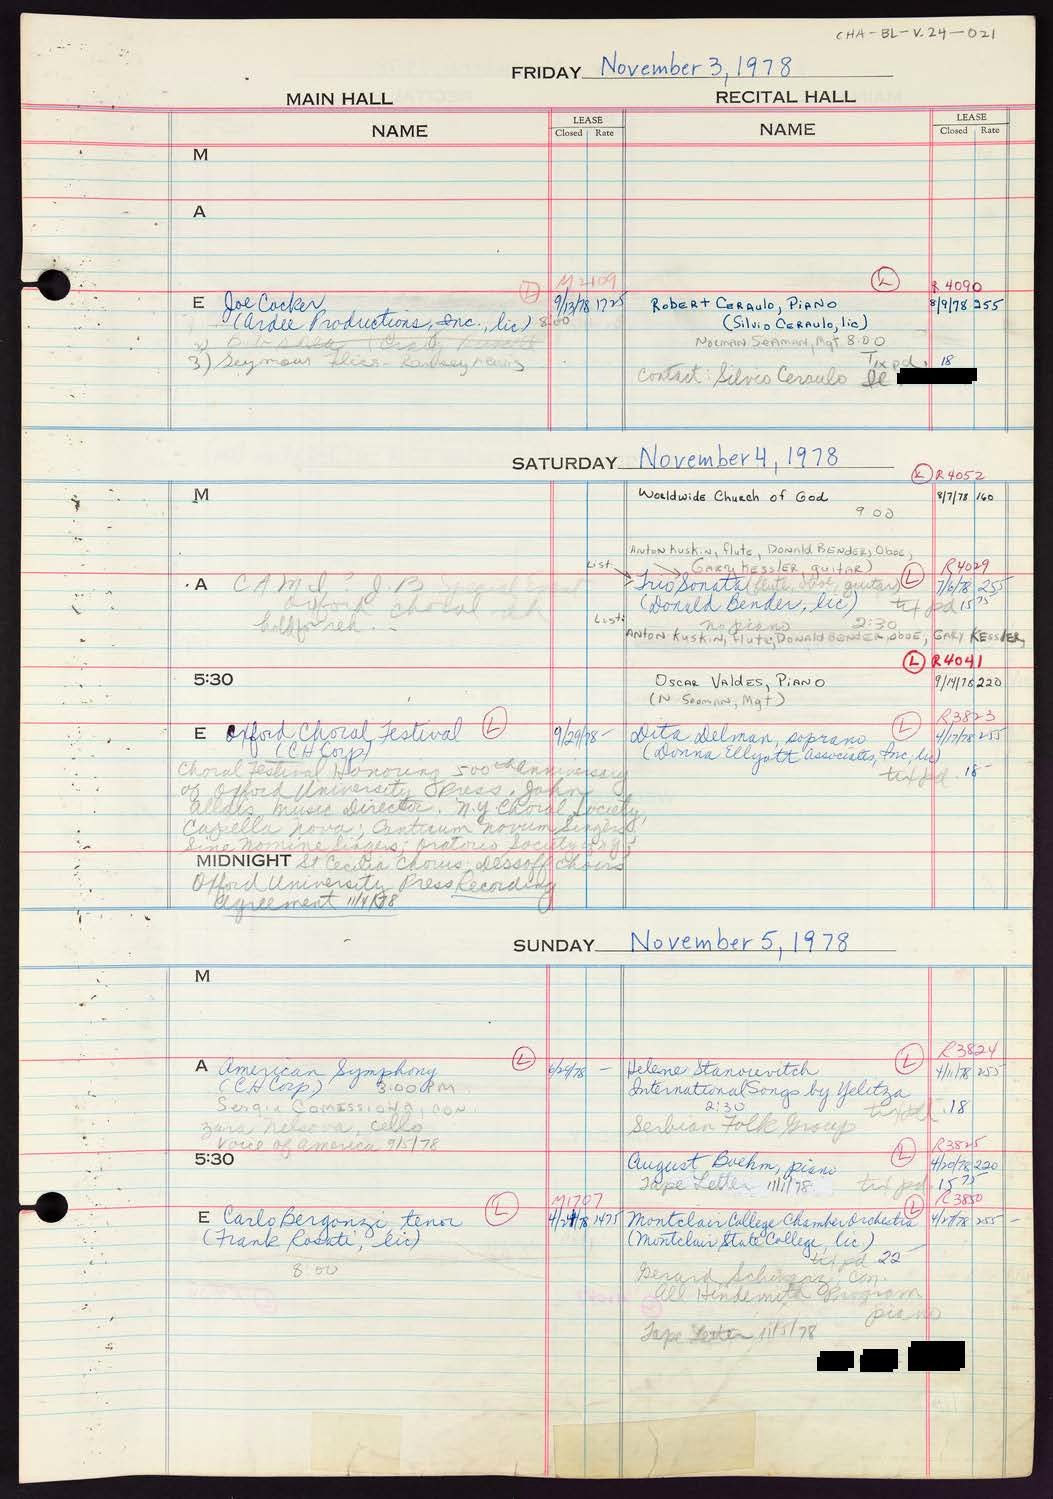 CHA-BL-V.24-021
FRIDAY November 3, 1978
MAIN HALL
RECITAL HALL
NAME
LEASE
Closed Rate
NAME
LEASE
Closed Rate
M
A
L M2109
L R 4090
E Joe Cocker 9/13/78 1725
(Ardee Productions, Inc., lic) 8:00
3) Seymour
Robert Ceraulo, Piano 8/9/78 255
(Silvio Ceraulo, lic)
Norman Seaman, Mgt 8:00
Tix pd. 18
Contact: Silvio Ceraulo
SATURDAY November 4, 1978
L R4052
M
Worldwide Church of God 8/7/78 160
9 00
Anton Kuskin, flute, Donald Bender, Oboe,
List Gary Kessler, guitar)
L R4029
A CAMI
Oxford Choral reh
Trio Sonata (flute, oboe, guitar) 7/6/78 255
(Donald Bender, lic) tix pd 15 75
List: no piano 2:30
Anton Kuskin, flute, Donald Bender, oboe, Gary Kessler,
L R4041
5:30
Oscar Valdes, Piano 9/14/78 220
(N Seaman, Mgt)
L R3823
E Oxford Choral Festival L 9/29/78 -
(CH Corp)
Dita Delman, soprano 4/17/78 255
(Donna Ellyott Associates, Inc, lic)
tix pd .18
Choral Festival Honoring 500th anniversary
of Oxford University Press. John
Alldis Music Director. N.Y Choral Society,
Capella Nova; Canticum Novum Singers,
Sine Nomine Singers; Oratorio Society of
MIDNIGHT St Cecilia Chorus; Dessoff Choirs
Oxford University Press Recording
Agreement 11/4/78
SUNDAY November 5, 1978
M
L
L R3824
A American Symphony 6/29/78 -
(CH Corp) 3:00 PM
Sergiu Comissiona, con
Zara Nelsova, cello
Voice of America 9/5/78
Helene Stanoievitch 4/11/78 255
International Songs by Yelitza
2:30 tix pd .18
Serbian Folk Group
L R3825
5:30
August Boehm, piano 4/20/78 220
Tape Letter 11/1/78 tix pd. 15 75
L M1707
L R3850
E Carlo Bergonzi, tenor 4/24/78 1475
(Frank Rosati, lic)
8:00
Montclair College Chamber Orchestra 4/27/78 255 -
(Montclair State College, lic)
tix pd 22
Gerard Schwarz, con.
All Hindemith Program
piano
Tape Letter 11/5/78